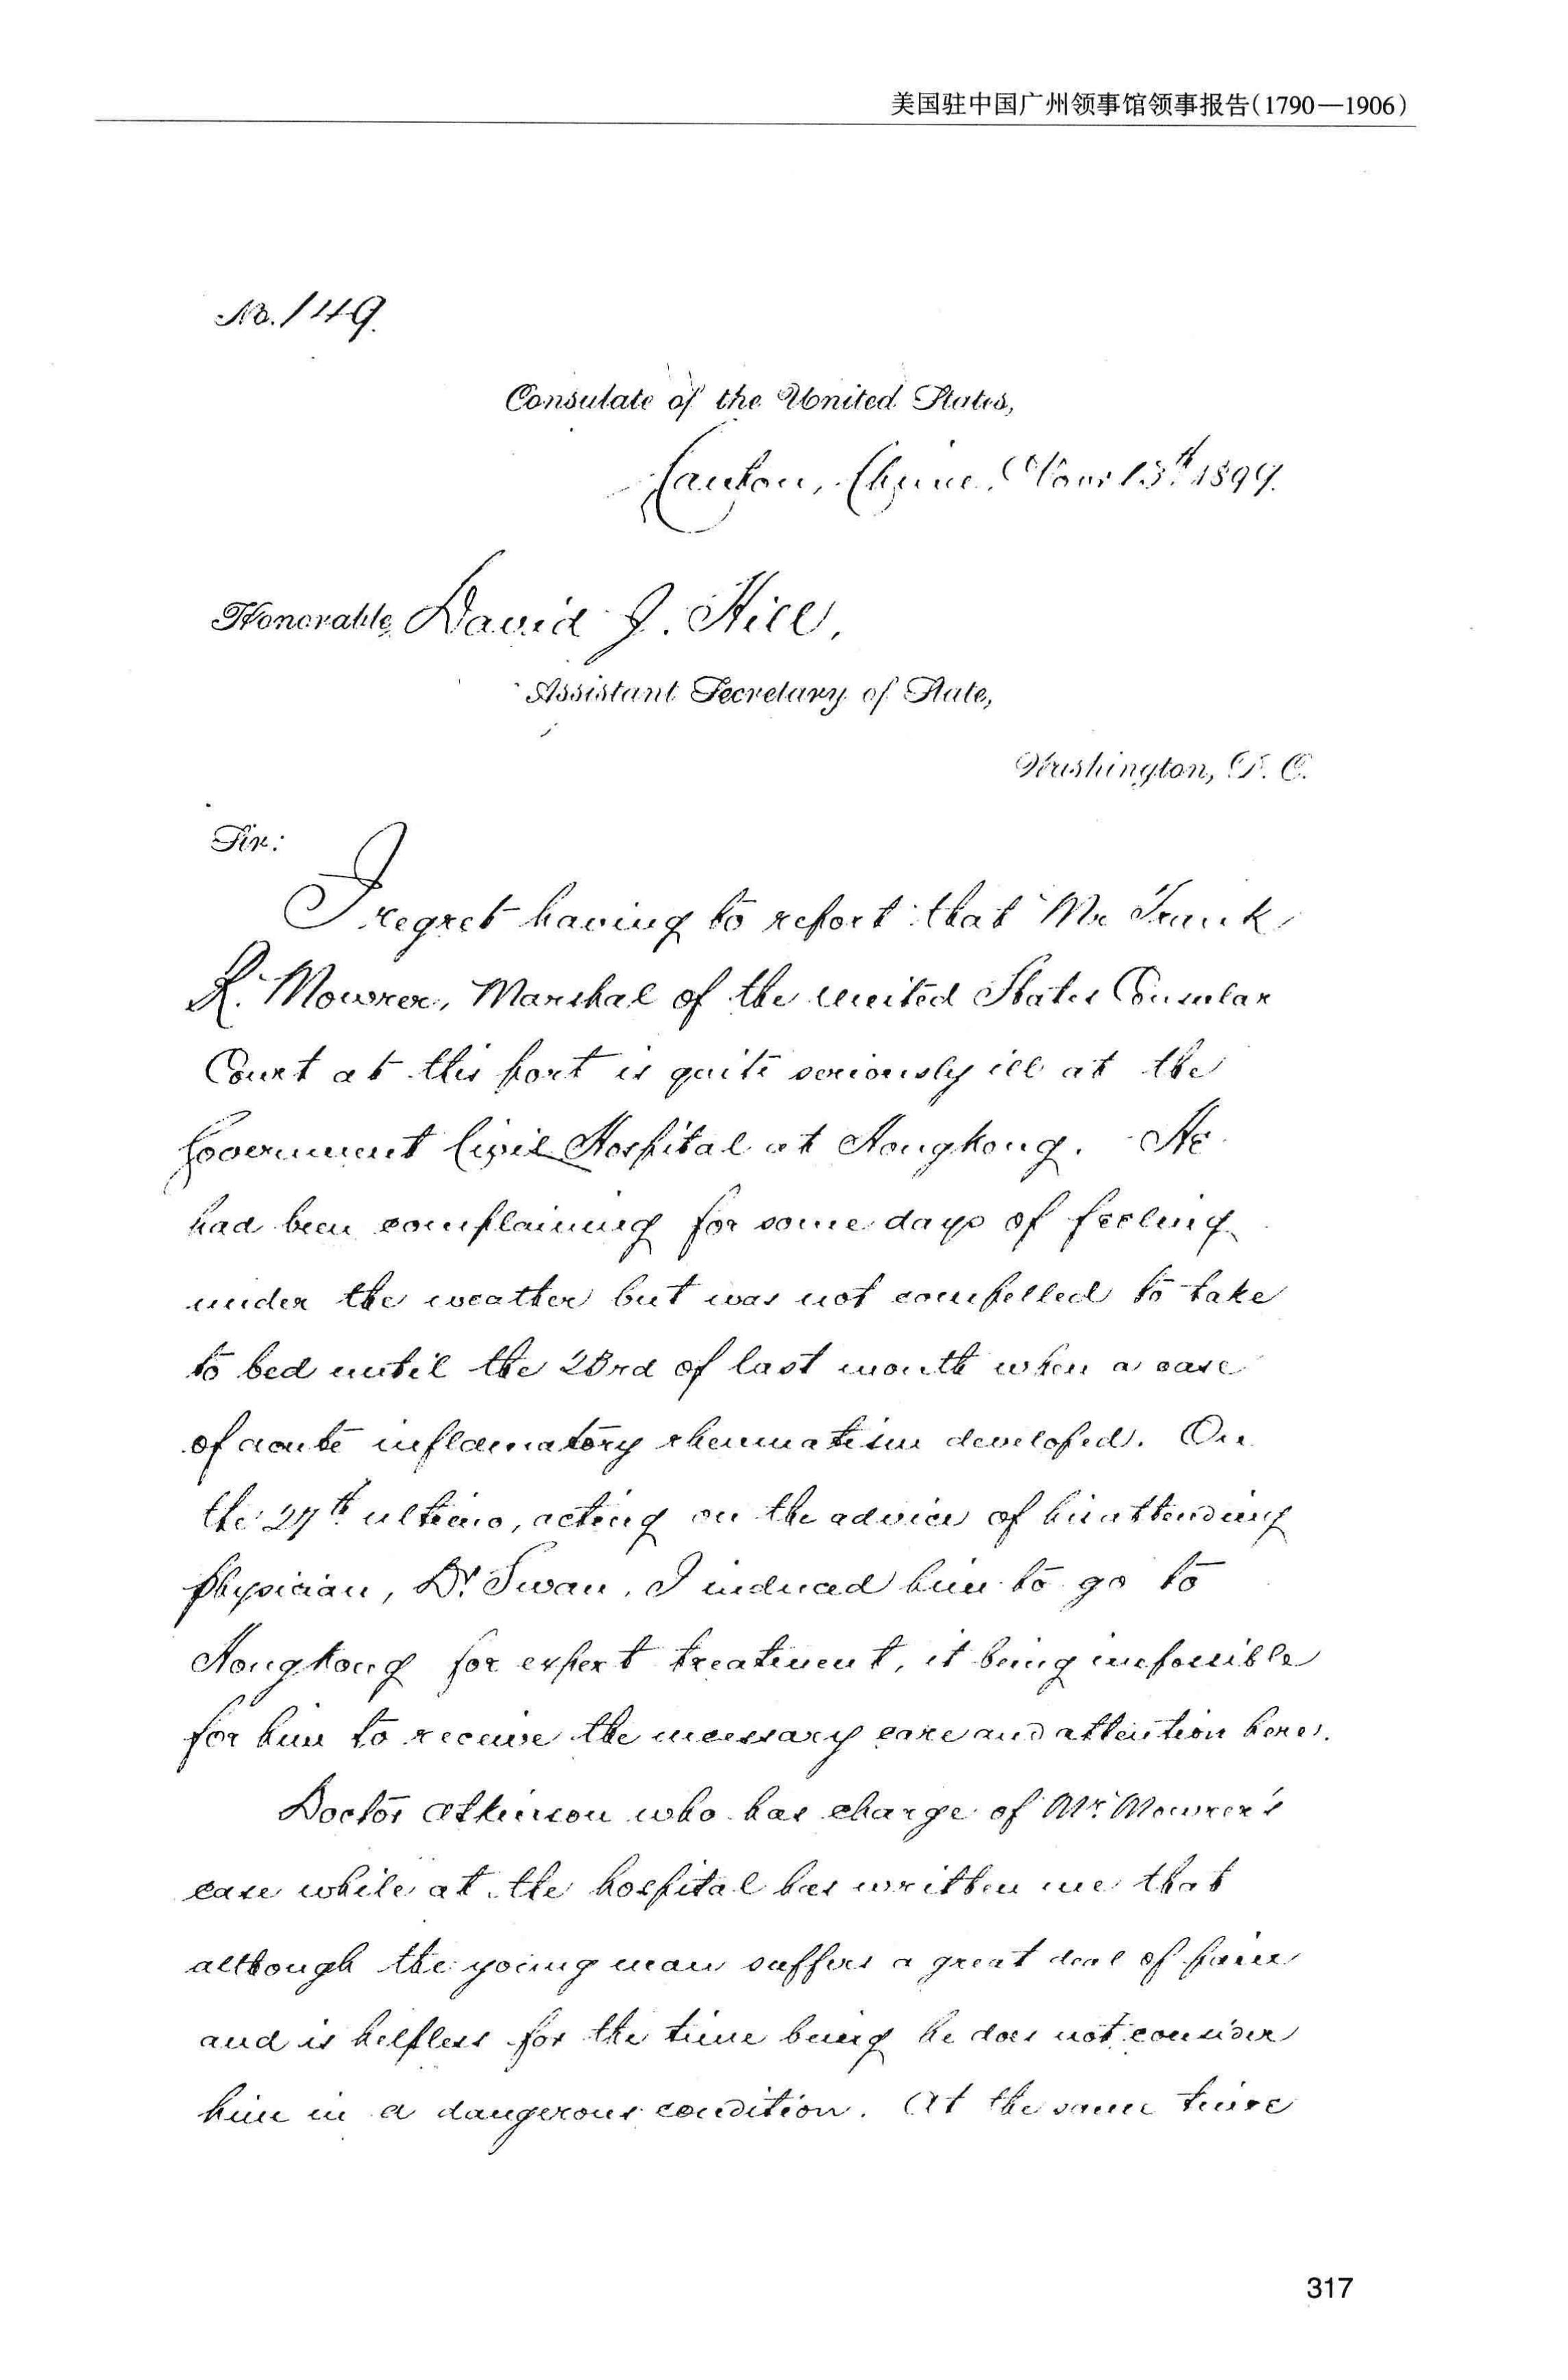 美国驻中国广州领事馆领事报告(1790—1906)
No. 149.
Consulate of the United States,
Canton, China, Nov. 13th 1899.
Honorable David J. Hill,
Assistant Secretary of State,
Washington, D. C.
Sir:
I regret having to report that Mr Frank
R. Mowrer, Marshal of the United States Consular
Court at this port is quite seriously ill at the
Government Civil Hospital at Hongkong. He
had been complaining for some days of feeling
under the weather but was not compelled to take
to bed until the 23rd of last month when a case
of acute inflamatory rheumatism developed. On
the 27th ultimo, acting on the advice of his attending
physician, Dr. Swan, I induced him to go to
Hongkong for expert treatment, it being impossible
for him to receive the necessary care and attention here.
Doctor Atkinson who has charge of Mr. Mowrer's
case while at the hospital has written me that
although the young man suffers a great deal of pain
and is helpless for the time being he does not consider
him in a dangerous condition. At the same time
317